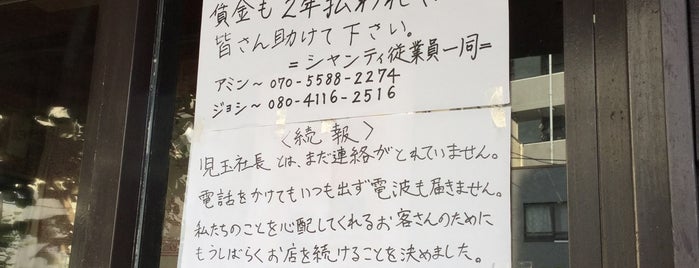 賃金も2年払われ
皆さん助けて下さい。
=シャンティ従業員一同=
アミン〜070-5588-2274
ジョシ〜080-4116-2516
〈続報〉
児玉社長とは、まだ連絡がとれていません。
電話をかけてもいつも出ず電波も届きません。
私たちのことを心配してくれるお客さんのために
もうしばらくお店を続けることを決めました。